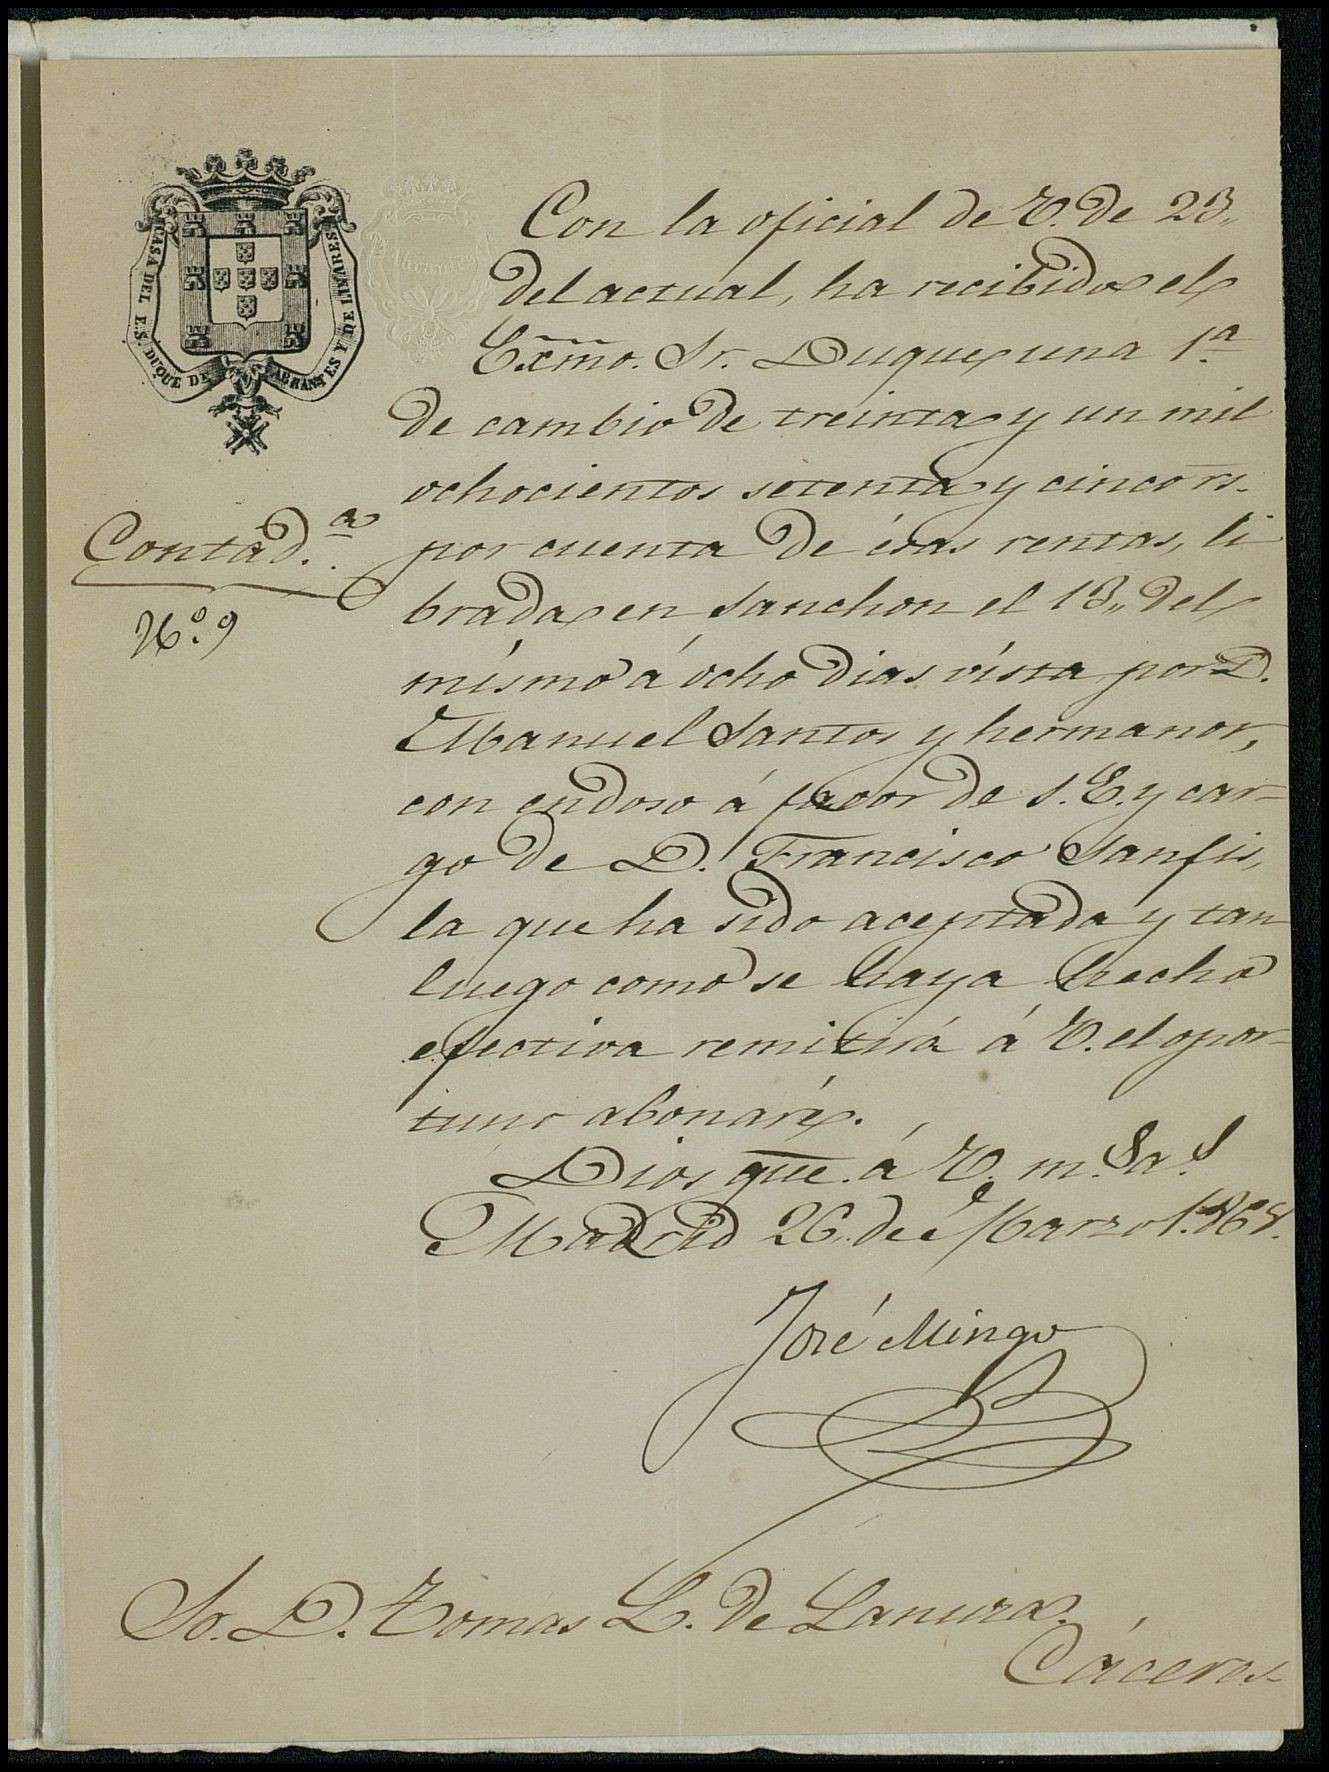 CASA DEL E.S. DUQUE DE ABRANTES Y DE LINARES
Contad.ª
N.º 9
Con la oficial de V. de 23,,
del actual, ha recibido el
Exmo. Sr. Duque una 1ª
de cambio de treinta y un mil
ochocientos setenta y cinco rs.
por cuenta de ésas rentas, li
brada en Sanchon el 13,, del
mismo á ocho dias vista por D.
Manuel Santos y hermanos,
con endoso á favor de S. E. y car-
go de D. Francisco Sanfis,
la que ha sido aceptada y tan
luego como se haya hecho
efectiva remitirá á V. el opor-
tuno abonaré.
Dios gue. á V. m.s a.s
Madrid 26,, de Marzo 1.868.
José Mingo
Sr. D. Tomas L. de Lanuza.
Cáceres